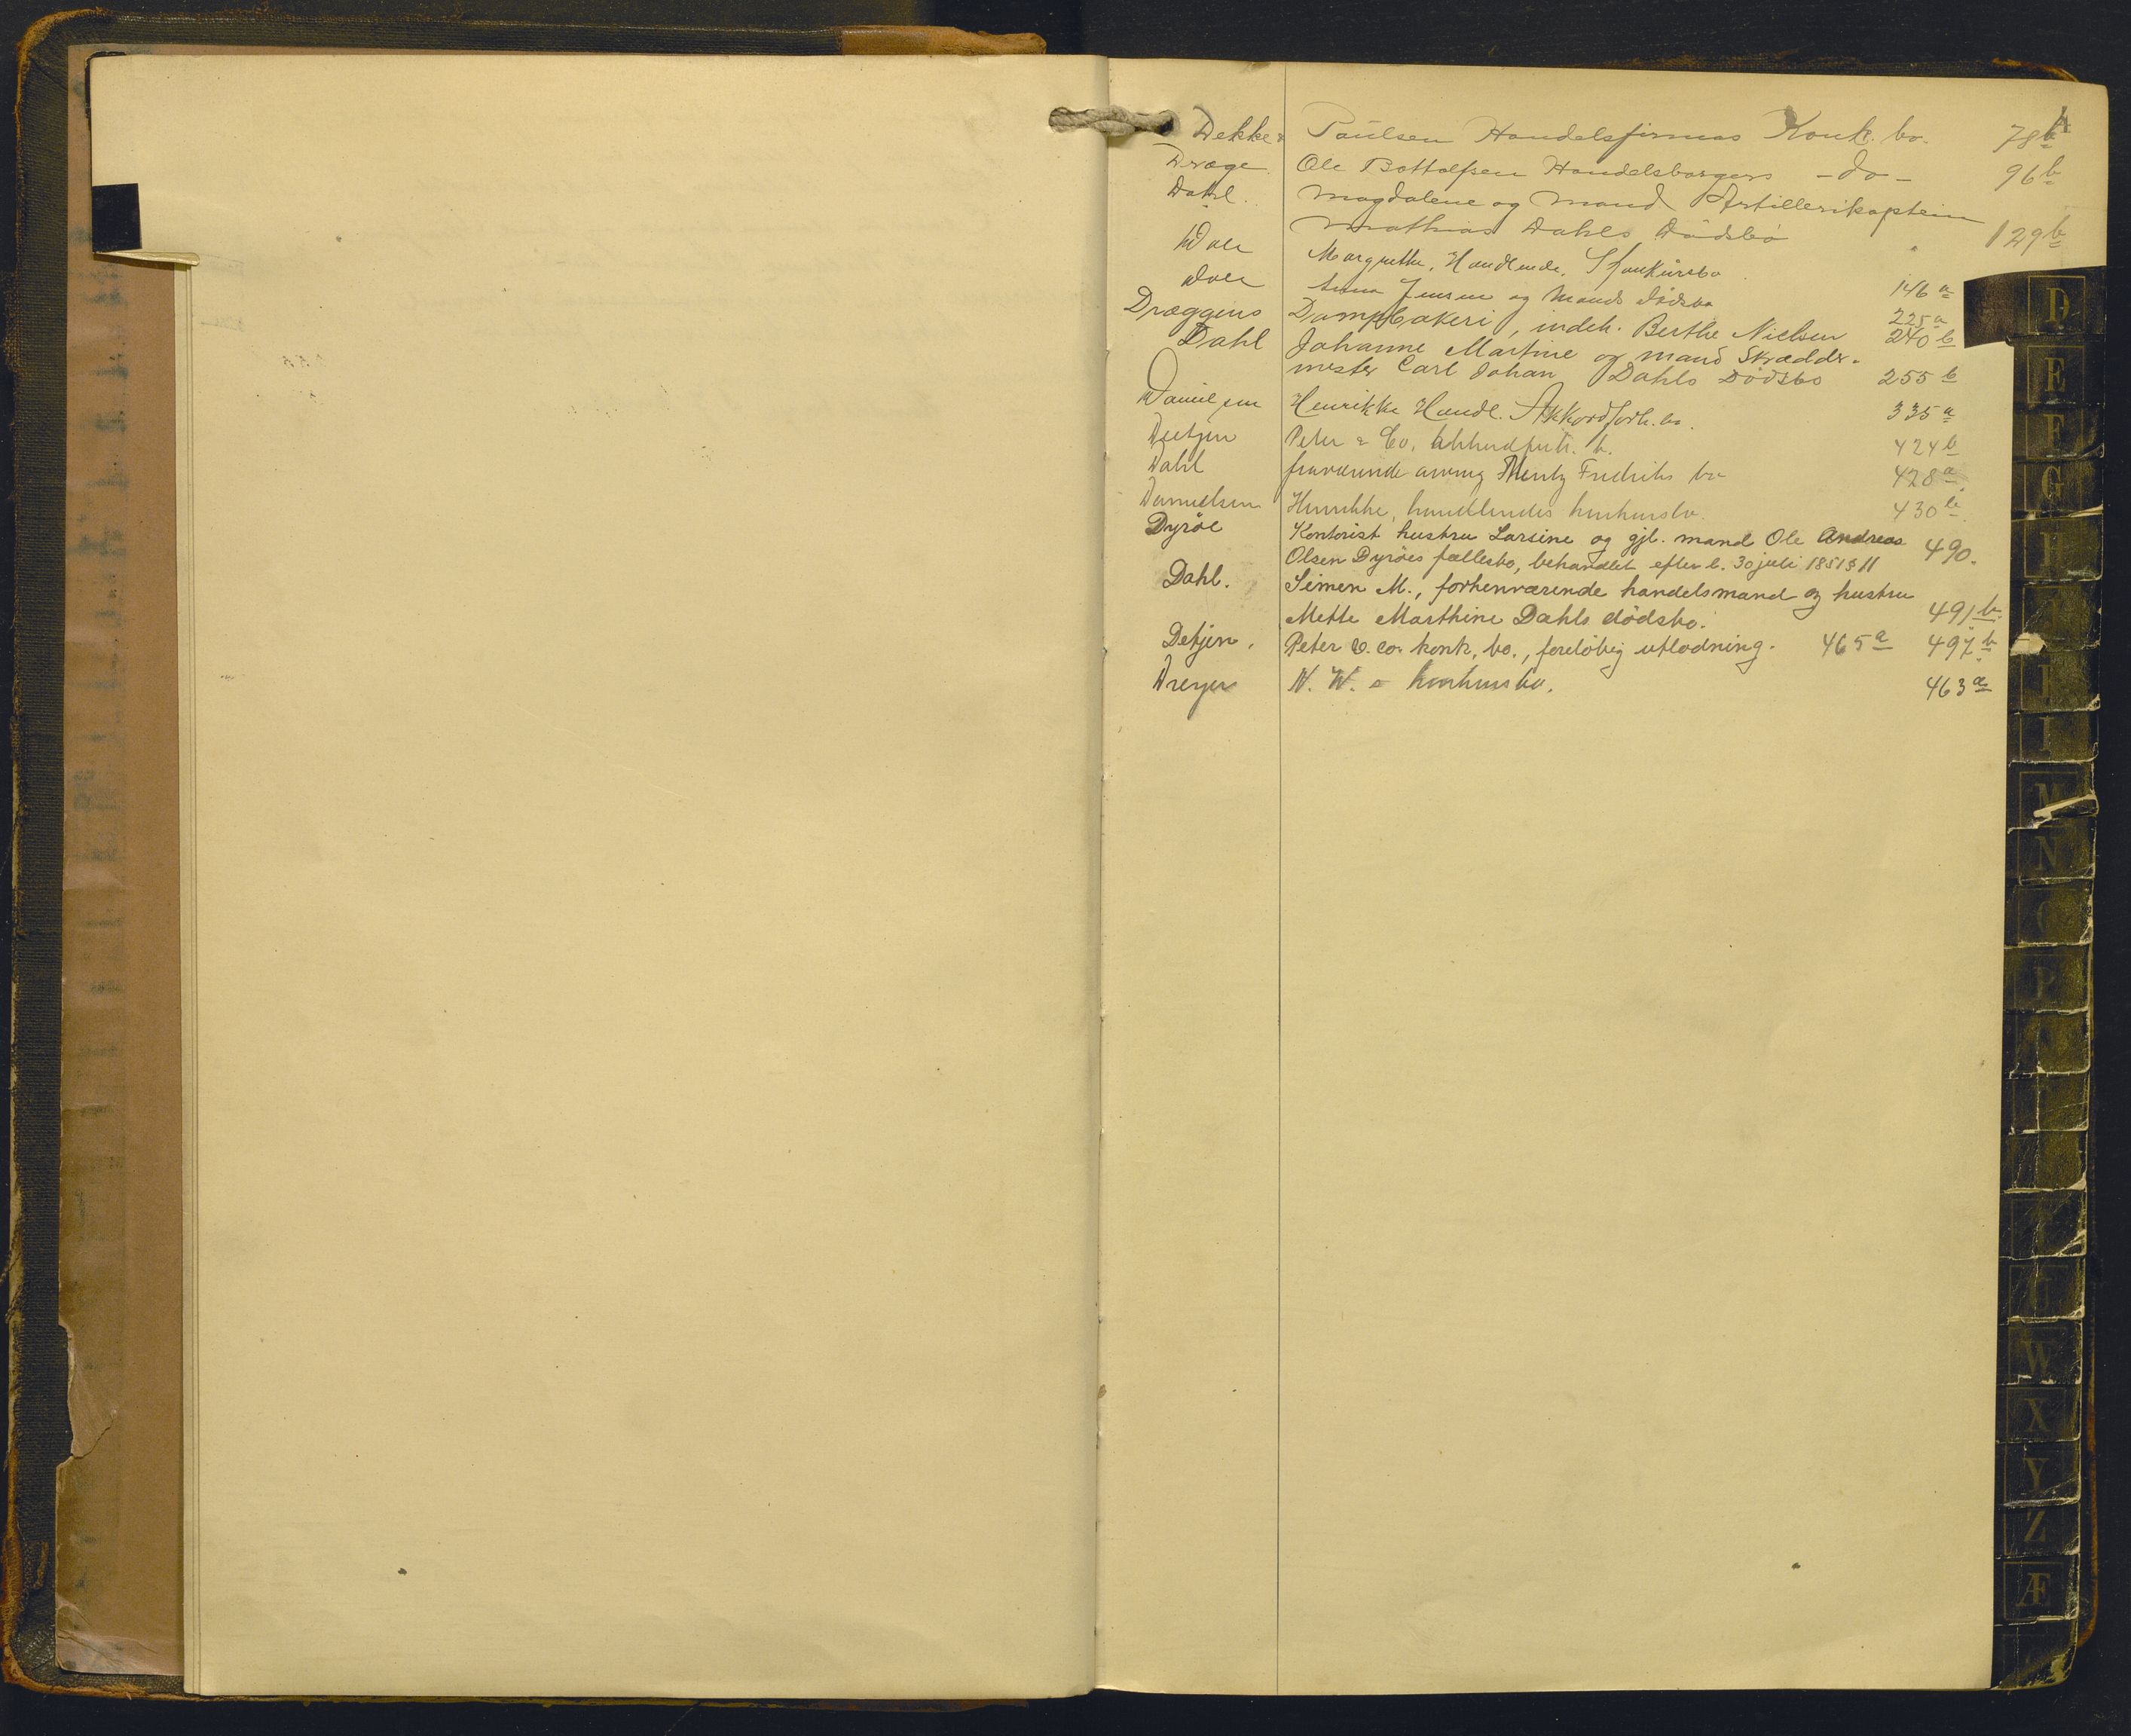 4
Dekke & Paulsen Handelsfirmas Konk. bo. 78 b
Dræge Ole Bottolfsen Handelsborgers - do - 96 b
Dahl. Magdalene og mand Artillerikaptein
Mathias Dahls Dødsbo 129 b
Margrethe, Handlende, 146 a
Anna Jensen og Mands dødsbo 225 a
Dræggens Dampbakeri, indeh. Berthe Nielsen 240 b
Dahl Johanne Martine og mand Skrædder-
mester Carl Johan Dahls Dødsbo 255 b
Danielsen Henrikke Handl. Akkordforh. bo. 335 a
Detjen Peter & Co. b. 424 b
Dahl fraværende arving Mentz Fredriks bo 428 a
Danielsen Henrikke, handlendes konkursbo. 430 b
Dyröe Kontorist hustru Larsine og gjl. mand Ole Andreas
Olsen Dyröes fællesbo, behandlet efter l. 30 juli 1851 § 11 490.
Dahl. Simen M., forhenværende handelsmand og hustru
Mette Marthine Dahls dödsbo. 491 b
Detjen. Peter & co. konk. bo., foreløbig utlodning. 465 a 497 b
Dreyer N. W. konkursbo. 463 a
D
E
F
G
H
I
M
N
O
P
U
W
X
Y
Z
Æ